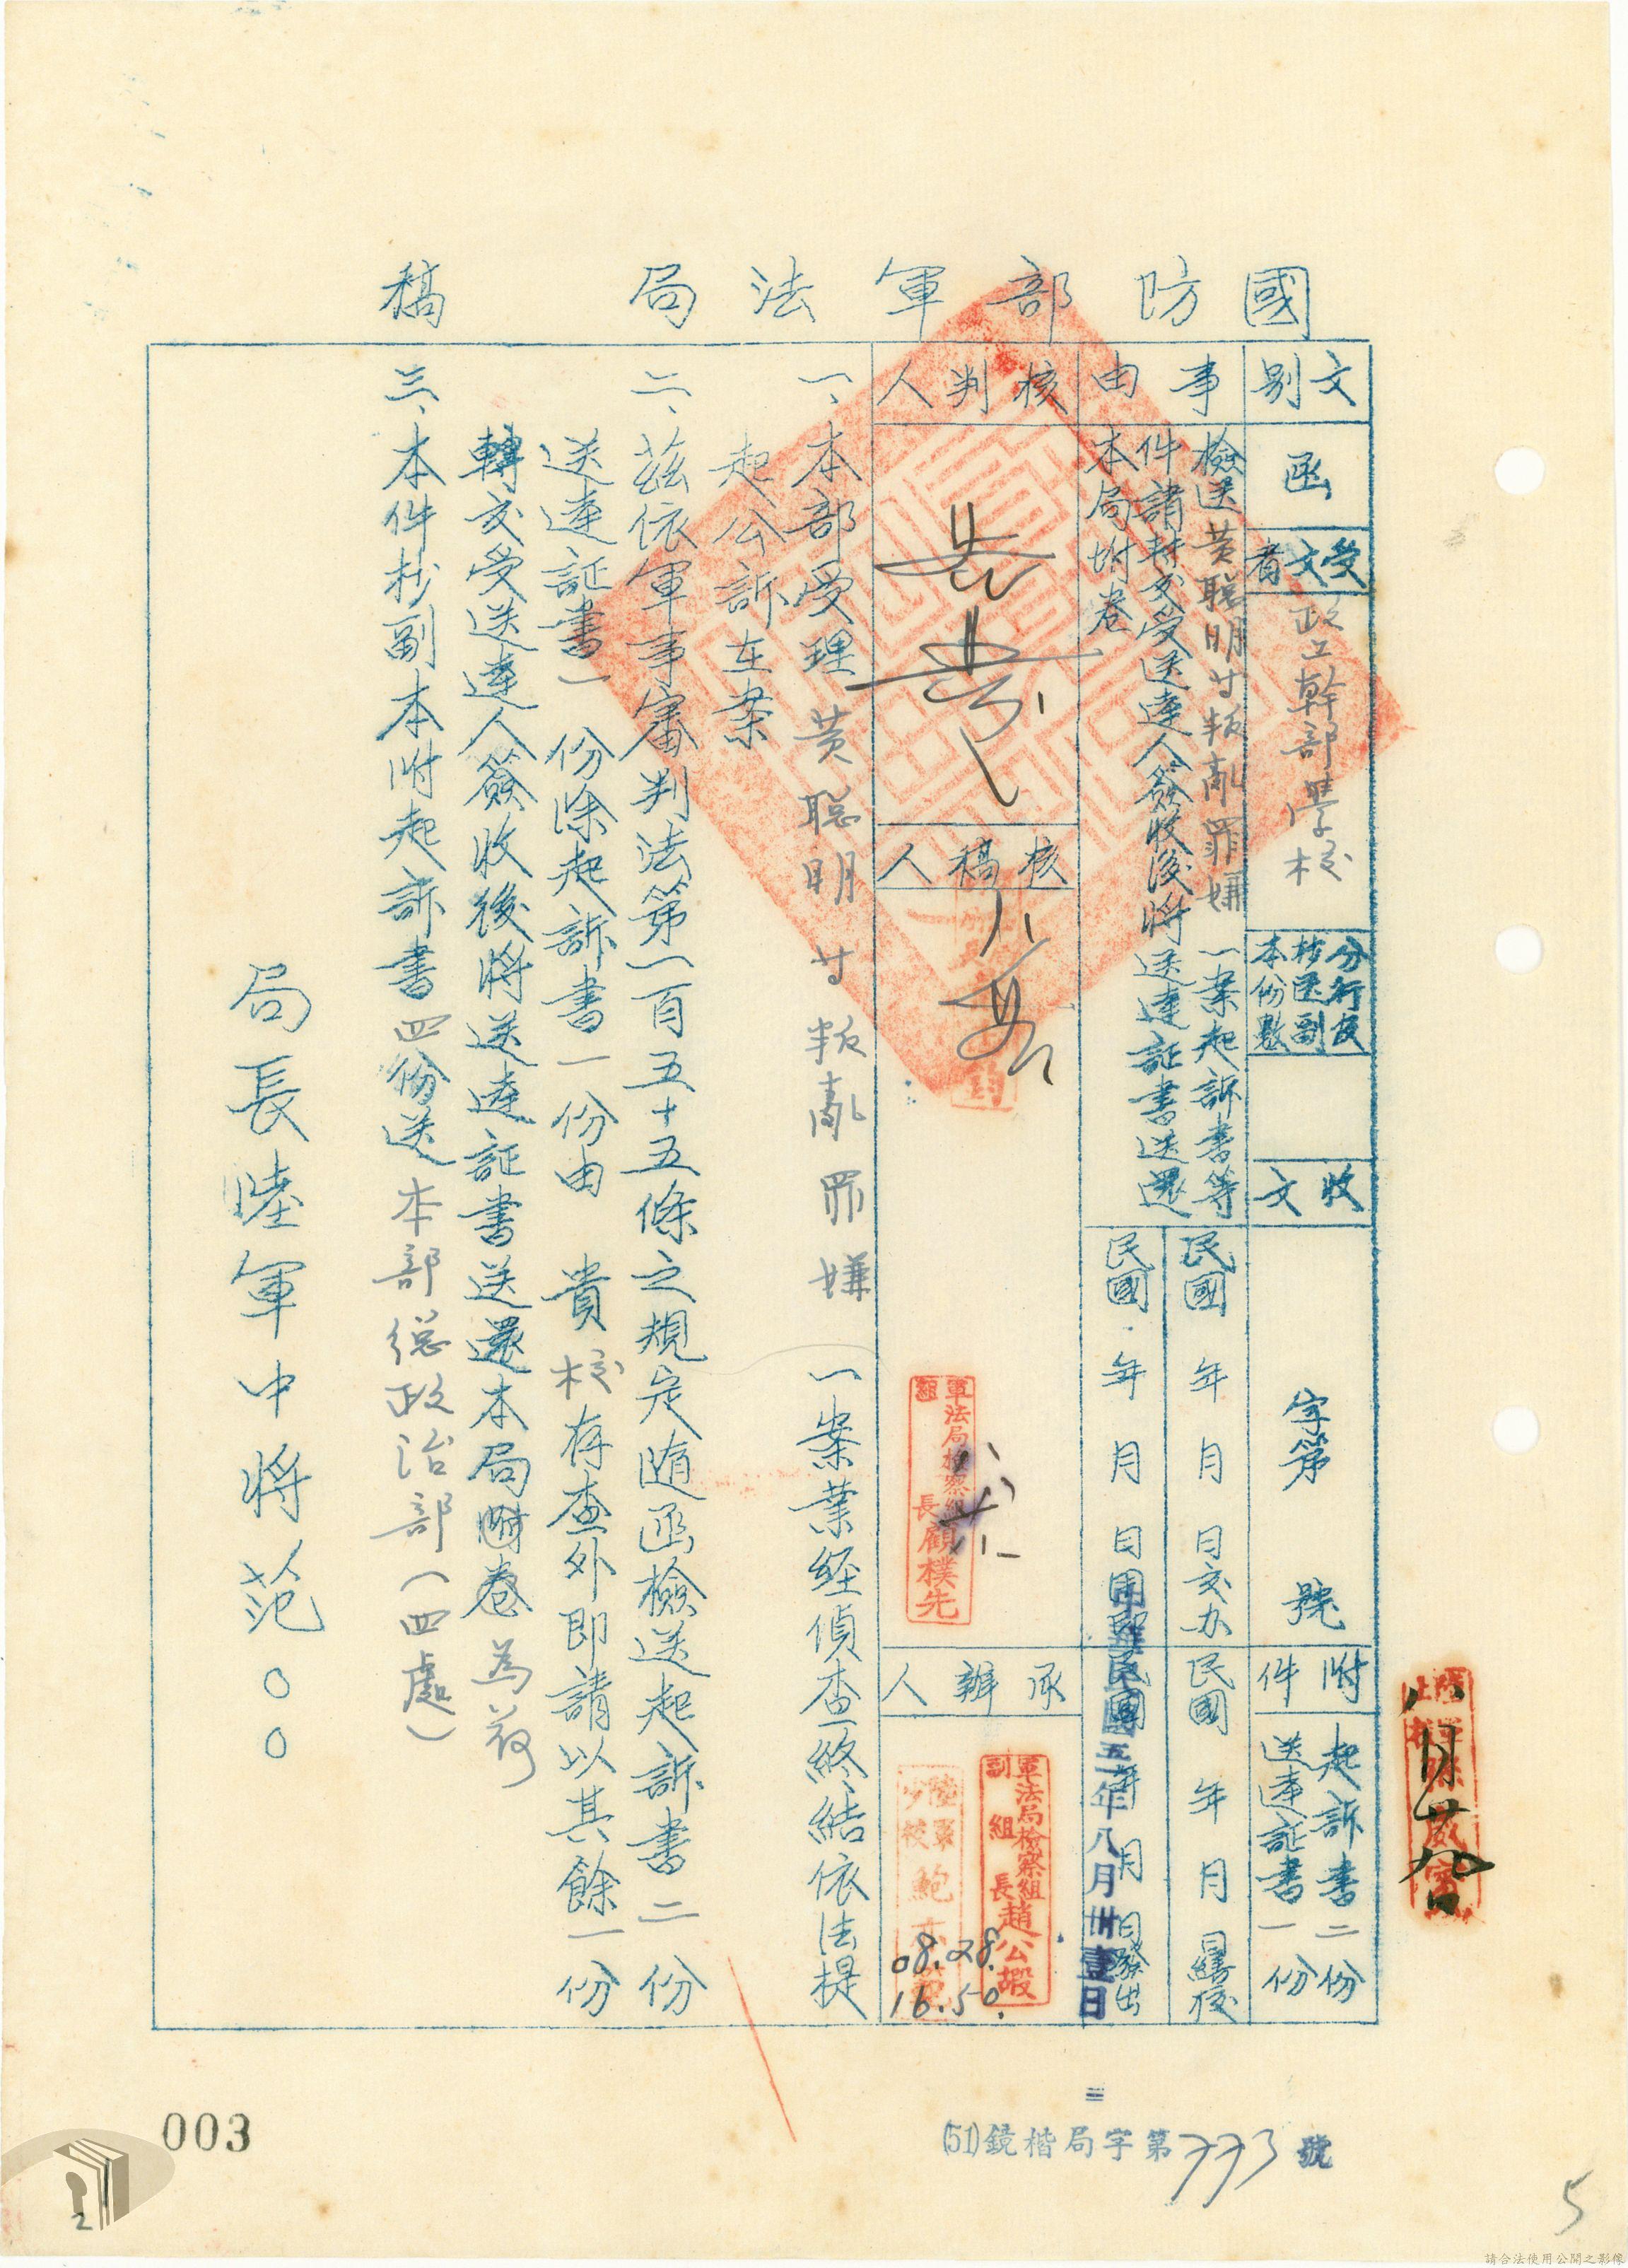 國防部軍法局稿
文別
函
受文者
政工幹部學校
分行及抄送副本份數
收文
字第 號
附件
起訴書二份
送達証書一份
事由
檢送黃聰明廿叛亂罪嫌一案起訴書等
件請轉交受送達人簽收後將送達証書送還
本局坿卷
民國 年 月 日交办
民國 年 月 日繕校
民國 年 月 日用印
民國 年 月 日發出
中華民國五十一年八月卅壹日
核判人
核稿人
軍法局檢察組組長顧樸先
承辦人
軍法局檢察組副組長趙公嘏
08.28.
16.50.
一、本部受理黃聰明廿叛亂罪嫌一案業經偵查終結依法提
起公訴在案
二、茲依軍事審判法第一百五十五條之規定隨函檢送起訴書二份
送達証書一份除起訴書一份由貴校存查外即請以其餘一份
轉交受送達人簽收後將送達証書送還本局附卷為荷
三、本件抄副本附起訴書四份送本部總政治部(四處)
局長陸軍中將范○○
八月廿九日
(51)鏡楷局字第773號
003
5
2
請合法使用公開之影像